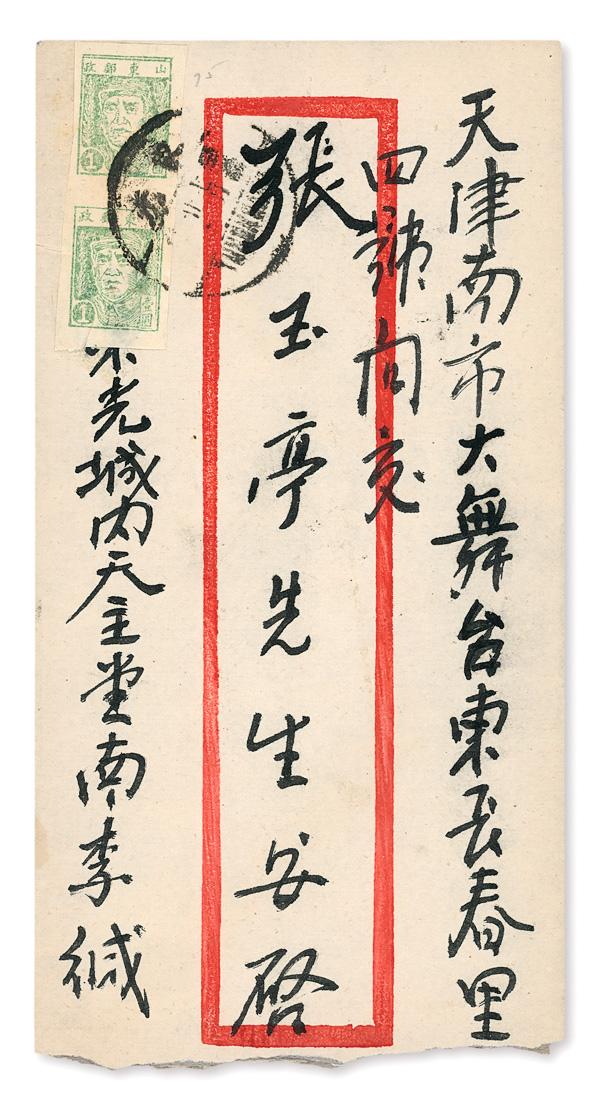 天津南市大舞台東長春里
四號向交
張玉亭先生安啓
光城内天主堂南李緘
山東郵政
1
政
1
壹圓
75